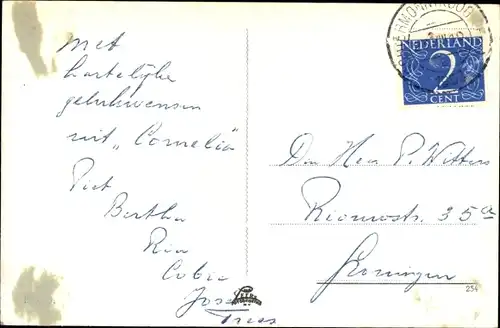 Met
hartelijke
gelukwensen
uit „Cornelia"
Piet
Bertha
Ria
Cobie
José
Trees
NEDERLAND
2
CENT
Den Heer P. Witters
35a
Groningen
254